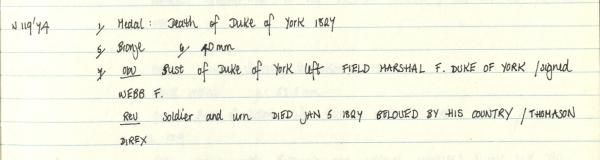 N 119'YA 1, Medal: Death of Duke of York 1827
5, Bronze 6, 40mm
7, Obv Bust of Duke of York left FIELD MARSHAL F. DUKE OF YORK / signed
WEBB F.
Rev Soldier and urn DIED JAN 5 1827 BELOVED BY HIS COUNTRY / THOMASON
DIREX